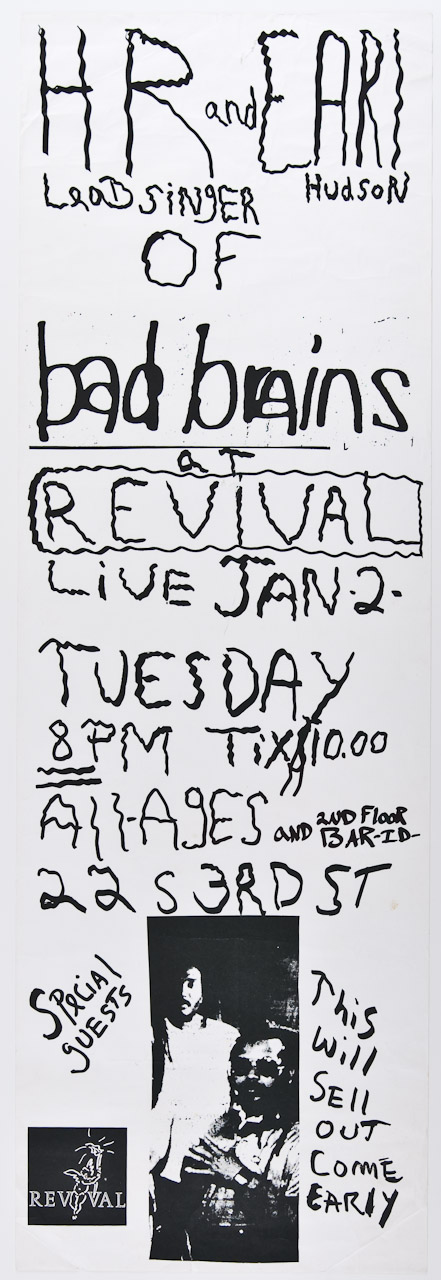 HR and EARl
LeaD SiNgER Hudson
OF
bad brains
aT
REVIVAL
LiVE JAN-2-
TUESDAY
8PM Tix $10.00
All-AgES and 2ND Floor BAR-ID-
22 S 3RD ST
Special
guESTS
This
will
SEll
OUT
ComE
EARly
REVIVAL